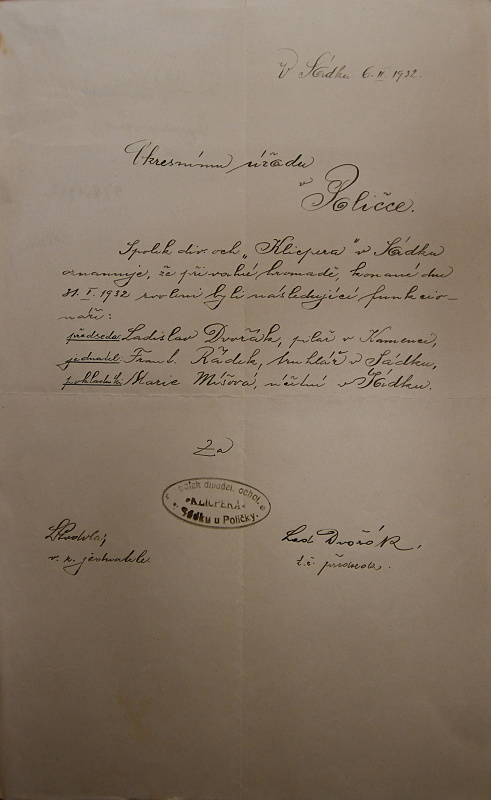 V Sádku 6.II.1932.
Okresnímu úřadu
v
Poličce.
Spolek div. och. „Klicpera" v Sádku
oznamuje, že při valné hromadě, konané dne
31.I.1932 zvoleni byli následující funkcio-
náři:
předseda Ladislav Dvořák, pilař v Kamenci,
jednatel Frant. Řádek, truhlář v Sádku,
pokladník Marie Míšová, učitel. v Sádku.
Za
Spolek divadel. ochot.
„KLICPERA"
v Sádku u Poličky.
v. z. jednatele
Lad. Dvořák,
t.č. předseda.